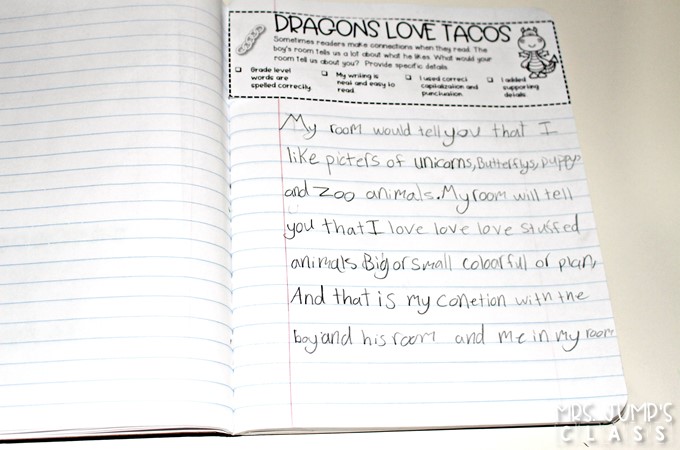 DRAGONS LOVE TACOS
Sometimes readers make connections when they read. The
boy's room tells us a lot about what he likes. What would your
room tell us about you? Provide specific details.
Grade level words are spelled correctly.
My writing is neat and easy to read.
I used correct capitalization and punctuation.
I added supporting details.
My room would tell you that I
like picters of unicorns, Butterflys, puppys
and zoo animals. My room will tell
you that I love love love stuffed
animals. Big or small coloorful or plan,
And that is my conetion with the
boy and his room and me in my room
MRS. JUMP'S
CLASS